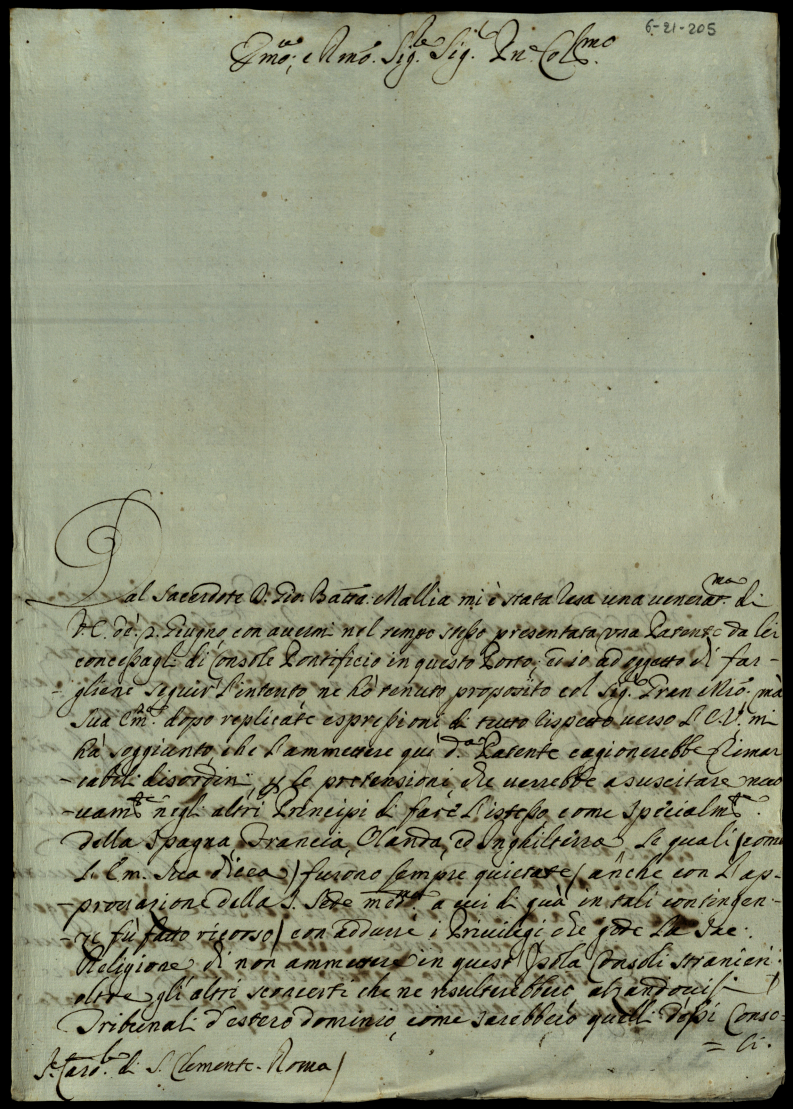 6-21-205
Emo; e Rmo. Sigre Sigr Pne Colmo
Dal Sacerdote D. Gio. Batta. Mallia mi è stata resa una venerarma. di
V.E. de' 2. Giugno con avermi nel tempo stesso presentata una Patente da lei
concessagli di Console Pontificio in questo Porto; ed io ad oggetto di far-
-gliene seguir l'intento ne hò tenuto proposito col Sigr. Gran Mro. mà
Sua Emza. dopo replicate espressioni di tutto rispetto verso l'E.V. mi
hà soggiunto, che l'ammettere qui da. Patente cagionerebbe rimar
-cabili disordini, p le pretensione che verrebbe a suscitare nuo
-vamte negli altri Principi di fare l'istesso, come specialmte.
della Spagna, Francia, Olanda, ed Inghilterra le quali (come
S. Em. Sua dicea) furono sempre quietate (anche con l'ap-
-provazione della S. Sede medma a cui di quà in tali contingen-
-ze fù fatto ricorso) con addurre i Privilegi che gode la Sac.
Religione di non ammettere in quest'Isola Consoli stranieri.
oltre gli altri sconcerti che ne risulterebbero alzandovisi
Tribunali d'estero dominio, come sarebbero quelli d'essi Conso-
= li.
Sr. Carole. di S. Clemente. Roma)